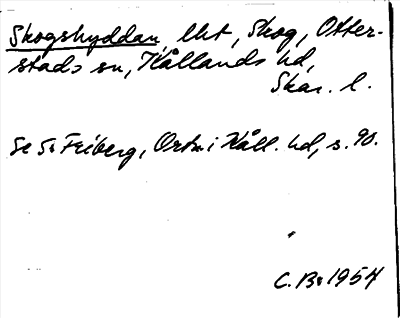 Skogshyddan, lht, Skog, Otter-
stads sn, Kållands hd,
Skar. l.
Se S. Friberg, Ortn i Kåll. hd, s. 90.
C. Br 1954